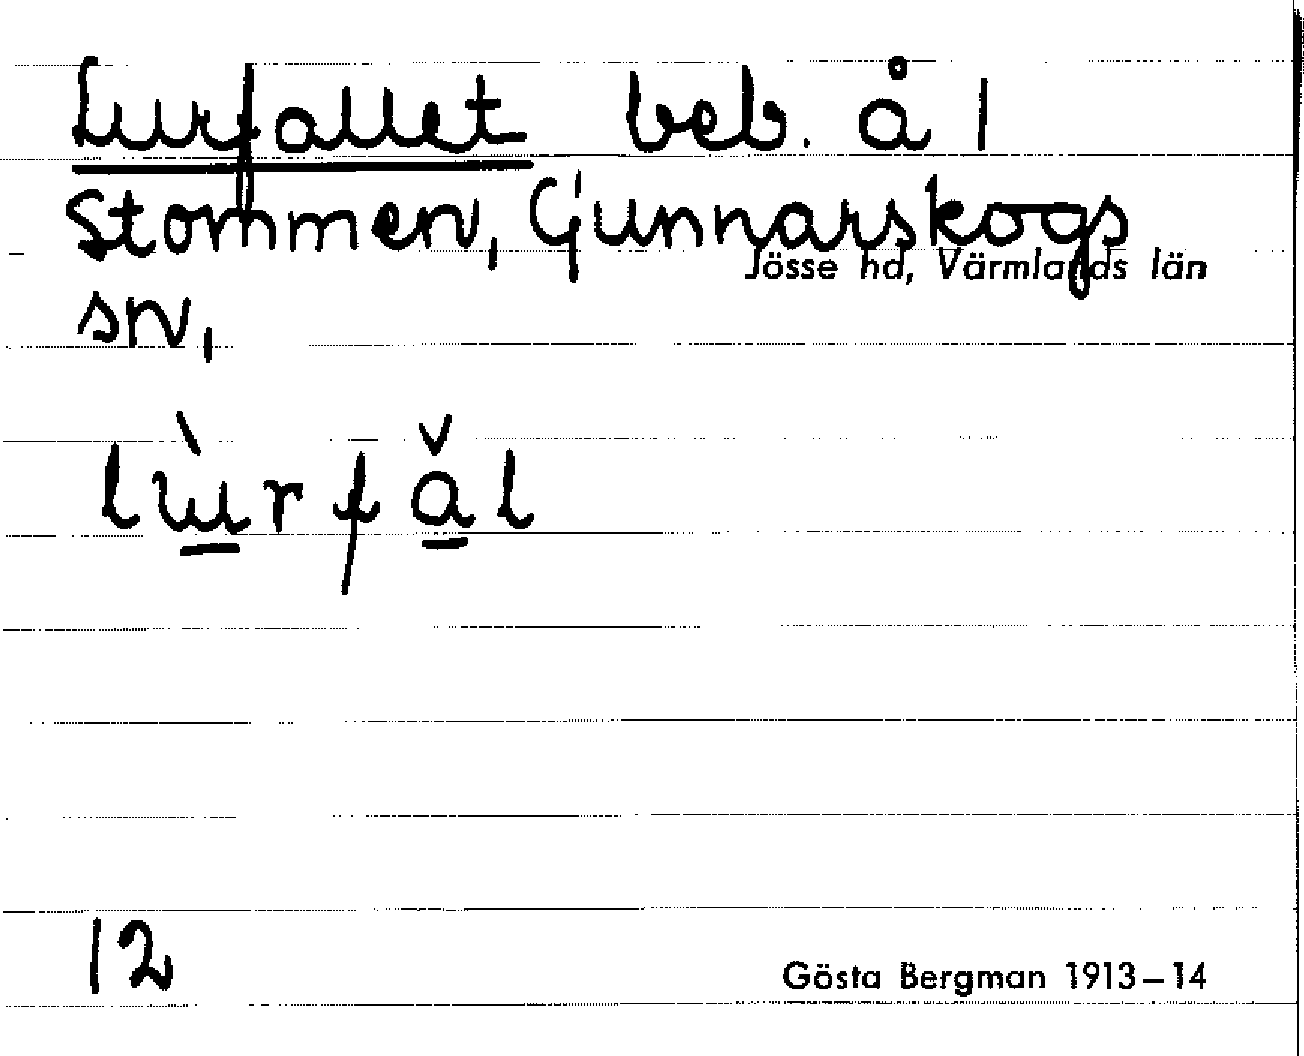 Lurfallet beb. å 1
Stommen, Gunnarskogs
Jösse hd, Värmlands län
sn,
lùrfăl
12
Gösta Bergman 1913–14